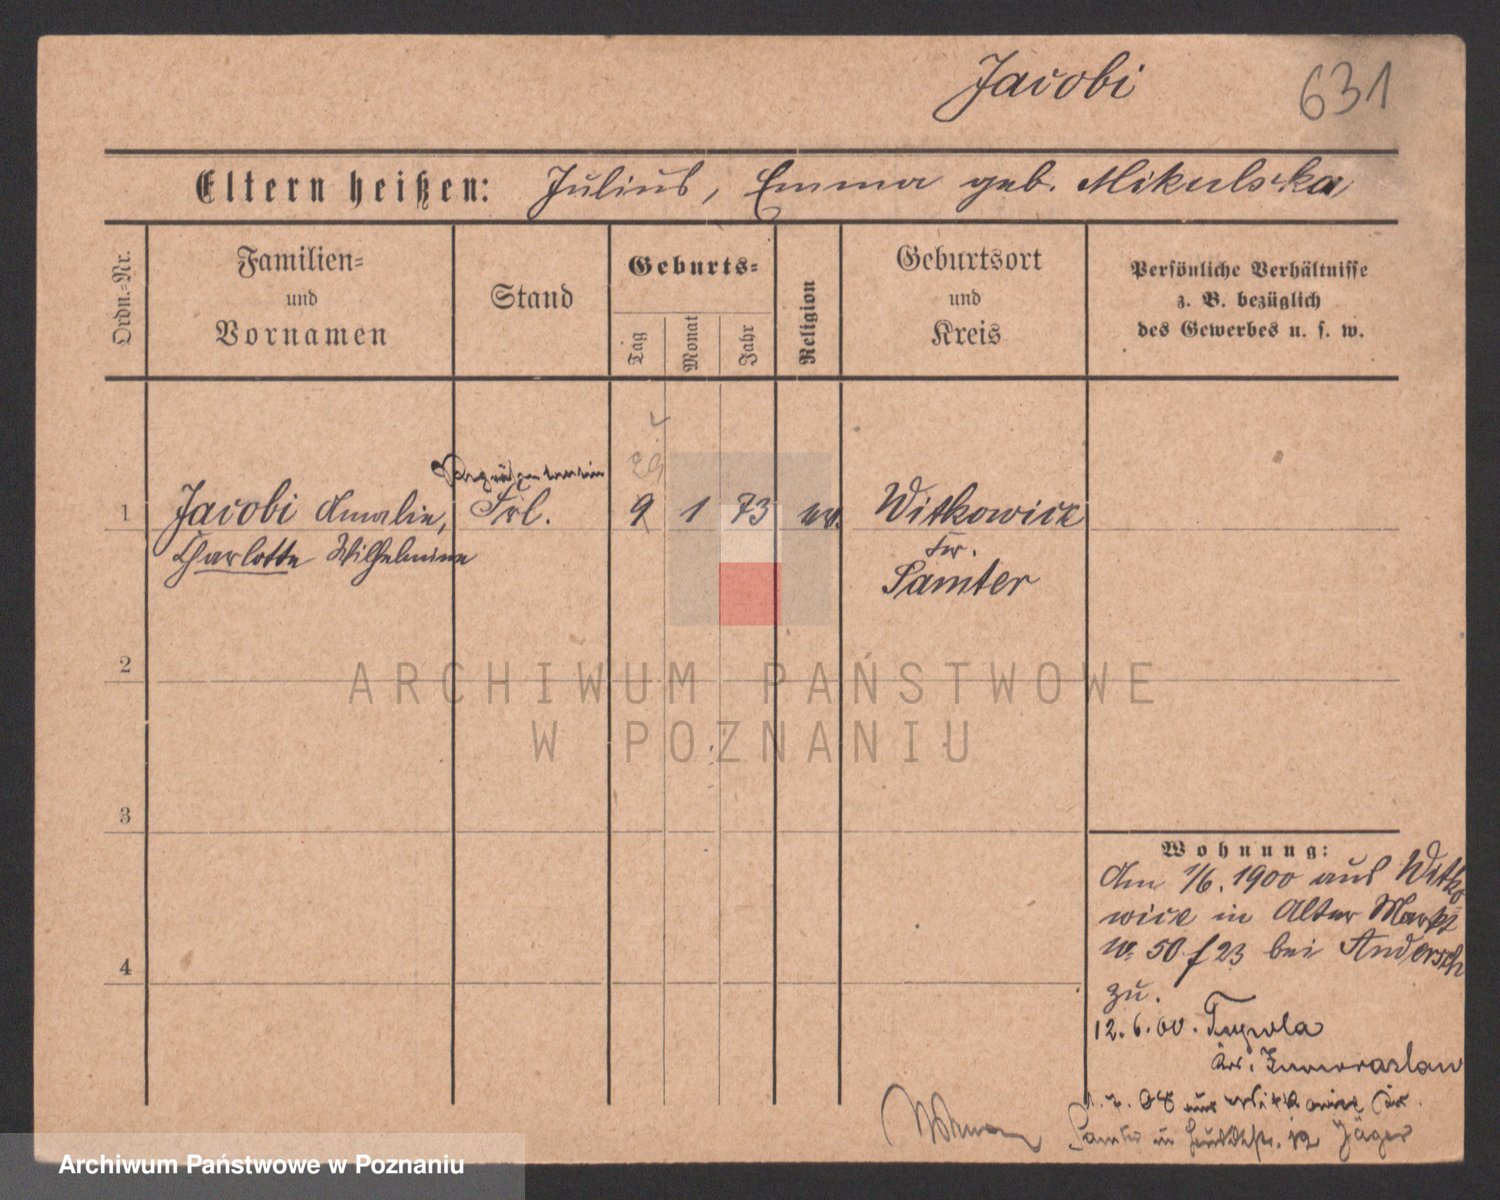 Jacobi
631
Eltern heißen: Julius, Emma geb. Mikulska
Ordn.-Nr.
Familien-
und
Vornamen
Stand
Geburts-
Tag
Monat
Jahr
Religion
Geburtsort
und
Kreis
Persönliche Verhältnisse
z. B. bezüglich
des Gewerbes u. s. w.
29
1 Jacobi Amalie, Frl. 9 1 73 ev. Witkowice
Charlotte Wilhelmine
Kr.
Samter
2
3
4
ARCHIWUM PAŃSTWOWE
W POZNANIU
Wohnung:
Am 1/6. 1900 aus Witko
wice in Alter Markt
No 50 f 23 bei Andersch
zu.
12.6.00.
Kr. Inowrazlaw
08 aus Witkowice Kr.
Samter in 12 Jäger
Archiwum Państwowe w Poznaniu